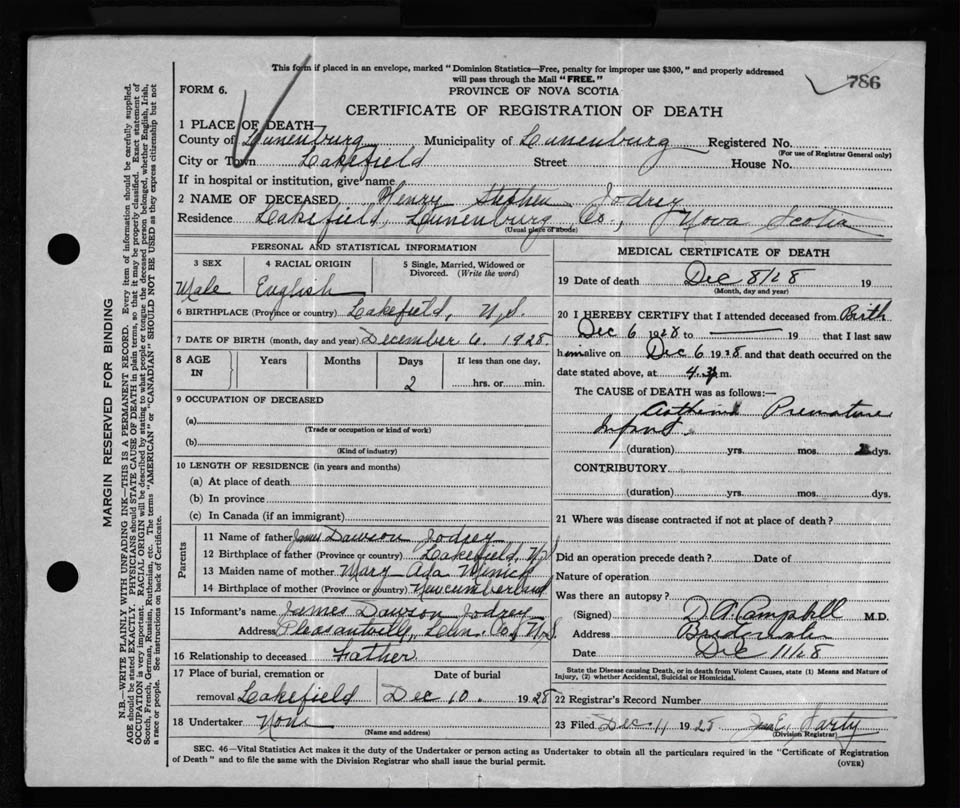 This form if placed in an envelope, marked "Dominion Statistics—Free, penalty for improper use $300," and properly addressed
will pass through the Mail "FREE."
786
FORM 6.
PROVINCE OF NOVA SCOTIA
CERTIFICATE OF REGISTRATION OF DEATH
1 PLACE OF DEATH
County of Lunenburg Municipality of Lunenburg Registered No.
(For use of Registrar General only)
City or Town Lakefield Street House No.
If in hospital or institution, give name
2 NAME OF DECEASED Henry Stephen Jodrey
Residence Lakefield, Lunenburg Co., Nova Scotia
(Usual place of abode)
PERSONAL AND STATISTICAL INFORMATION
3 SEX 4 RACIAL ORIGIN 5 Single, Married, Widowed or
Divorced. (Write the word)
Male English
6 BIRTHPLACE (Province or country) Lakefield, N.S.
7 DATE OF BIRTH (month, day and year) December 6. 1928.
8 AGE IN Years Months Days If less than one day,
2 hrs. or min.
9 OCCUPATION OF DECEASED
(a)
(Trade or occupation or kind of work)
(b)
(Kind of industry)
10 LENGTH OF RESIDENCE (in years and months)
(a) At place of death
(b) In province
(c) In Canada (if an immigrant)
Parents
11 Name of father James Dawson Jodrey
12 Birthplace of father (Province or country) Lakefield, N.S
13 Maiden name of mother Mary Ada
14 Birthplace of mother (Province or country) Newcumberland
15 Informant's name James Dawson Jodrey
Address Pleasantville, Lun. Co. N.S.
16 Relationship to deceased Father
17 Place of burial, cremation or Date of burial
removal Lakefield Dec 10. 1928
18 Undertaker None
(Name and address)
MEDICAL CERTIFICATE OF DEATH
19 Date of death Dec 8/28 19
(Month, day and year)
20 I HEREBY CERTIFY that I attended deceased from Birth
Dec 6 1928 to 19 that I last saw
him alive on Dec 6 1928 and that death occurred on the
date stated above, at 4 m.
The CAUSE of DEATH was as follows:—
Premature
Infant.
(duration) yrs. mos. 2 dys.
CONTRIBUTORY
(duration) yrs. mos. dys.
21 Where was disease contracted if not at place of death?
Did an operation precede death? Date of
Nature of operation
Was there an autopsy?
(Signed) D. A. Campbell M.D.
Address Bridgewater
Date Dec 11/28
State the Disease causing Death, or in death from Violent Causes, state (1) Means and Nature of
Injury, (2) whether Accidental, Suicidal or Homicidal.
22 Registrar's Record Number
23 Filed Dec 11 1928
(Division Registrar)
SEC. 46—Vital Statistics Act makes it the duty of the Undertaker or person acting as Undertaker to obtain all the particulars required in the "Certificate of Registration
of Death" and to file the same with the Division Registrar who shall issue the burial permit.
(OVER)
MARGIN RESERVED FOR BINDING
N.B.—WRITE PLAINLY WITH UNFADING INK—THIS IS A PERMANENT RECORD. Every item of information should be carefully supplied.
AGE should be stated EXACTLY. PHYSICIANS should STATE CAUSE OF DEATH in plain terms, so that it may be properly classified. Exact statement of
OCCUPATION is very important. RACIAL ORIGIN will be described by stating to what people or tongue the deceased person belonged, whether English, Irish,
Scotch, French, German, Russian, Ruthenian, etc. The terms "AMERICAN" or "CANADIAN" SHOULD NOT BE USED as they express citizenship but not
a race or people. See instructions on back of Certificate.